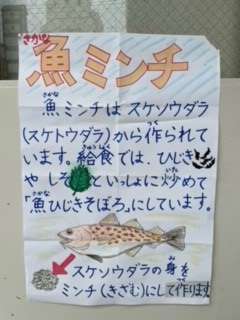 さかな
魚ミンチ
さかな
魚ミンチはスケソウダラ
(スケトウダラ)から作られて
きゅうしょく
います。給食では、ひじき
いた
やしそといっしょに炒めて
さかな
「魚ひじきそぼろ」にしています。
み
スケソウダラの身を
ミンチ(きざむ)にして作ります